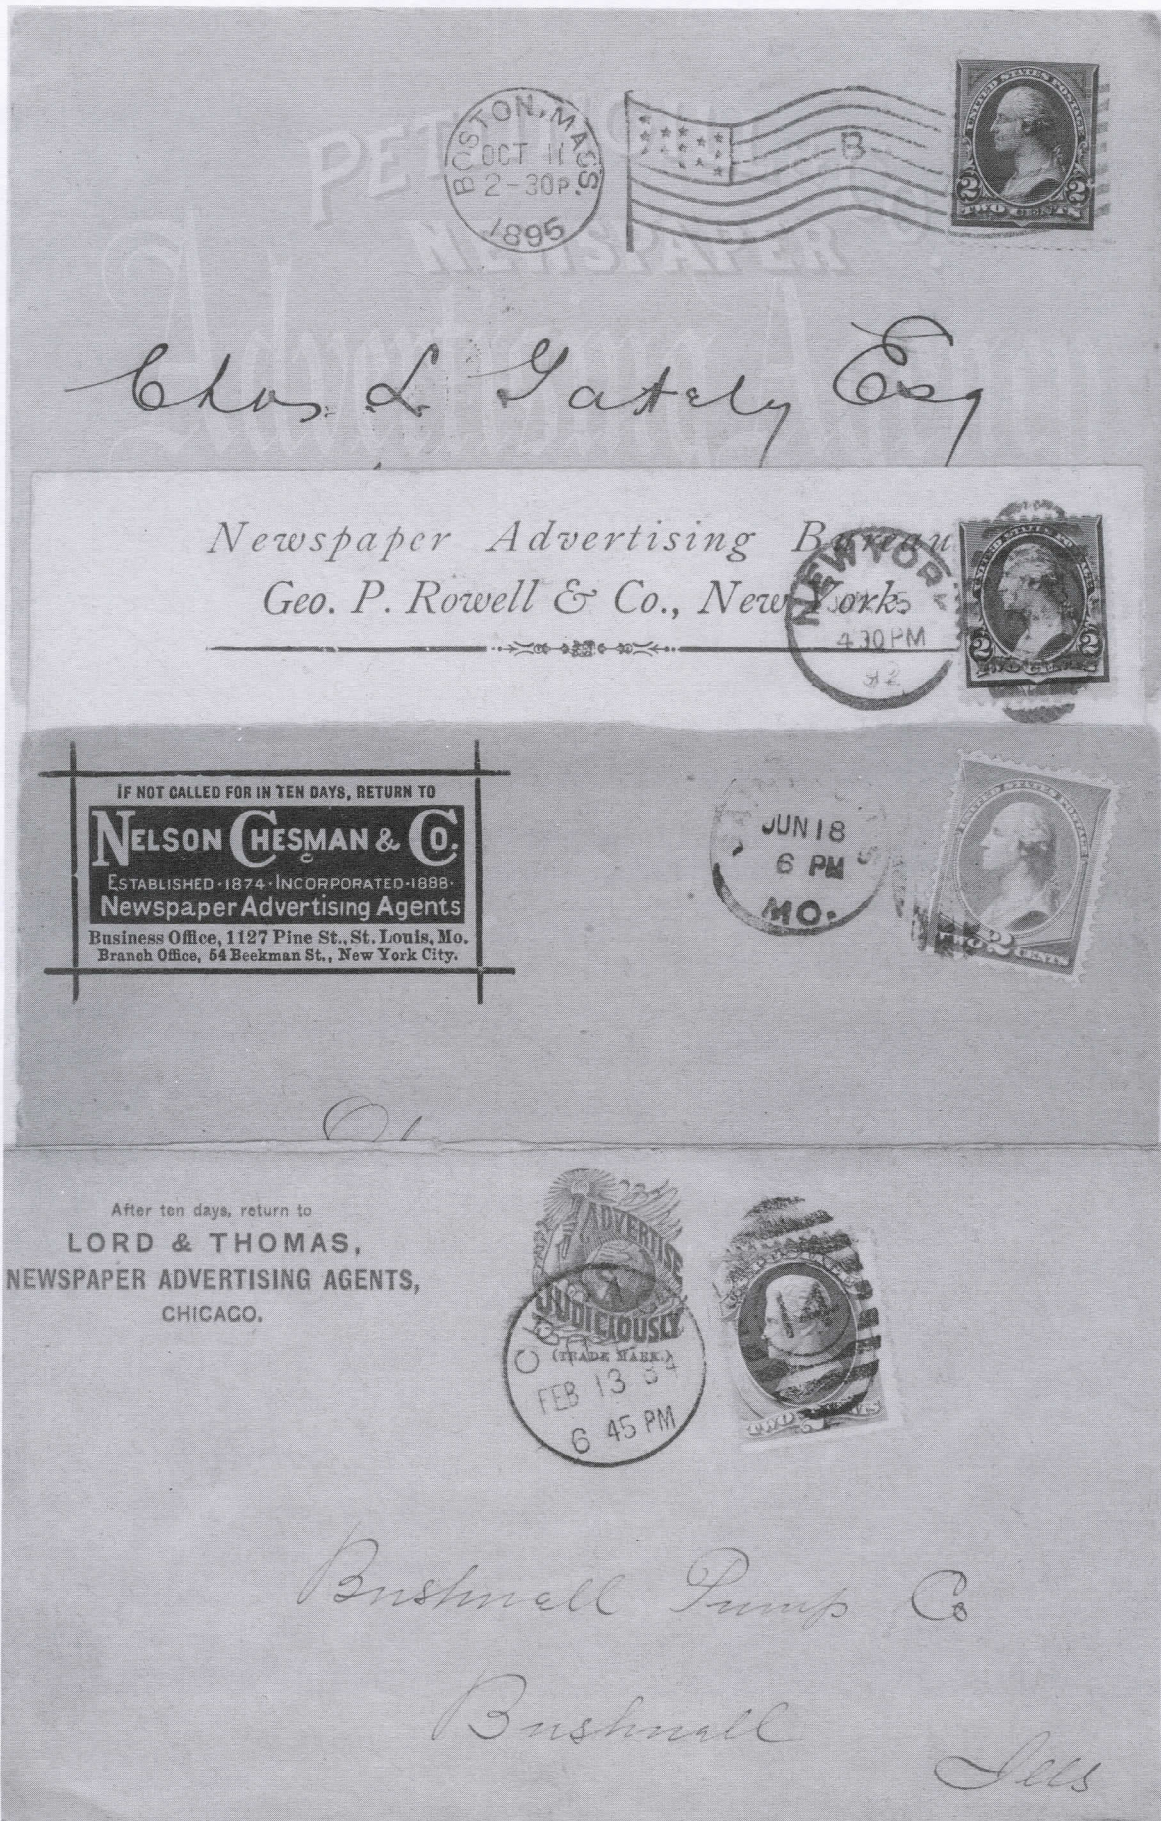 BOSTON, MASS.
OCT 11
2-30P.
1895
B
UNITED STATES POSTAGE
2 2
TWO CENTS
NEWSPAPER
Advertising Agency
Chas. L. Gately Esq
Newspaper Advertising Bureau
Geo. P. Rowell & Co., New York.
NEW YORK
4 30 PM
92
2 2
IF NOT CALLED FOR IN TEN DAYS, RETURN TO
NELSON CHESMAN & CO.
ESTABLISHED·1874·INCORPORATED·1888·
Newspaper Advertising Agents
Business Office, 1127 Pine St., St. Louis, Mo.
Branch Office, 54 Beekman St., New York City.
JUN 18
6 PM
MO.
UNITED STATES POSTAGE
TWO 2 CENTS
After ten days, return to
LORD & THOMAS,
NEWSPAPER ADVERTISING AGENTS,
CHICAGO.
ADVERTISE
JUDICIOUSLY
(TRADE MARK.)
FEB 13 84
6 45 PM
14
TWO CENTS
Bushnell Pump Co
Bushnell
Ills